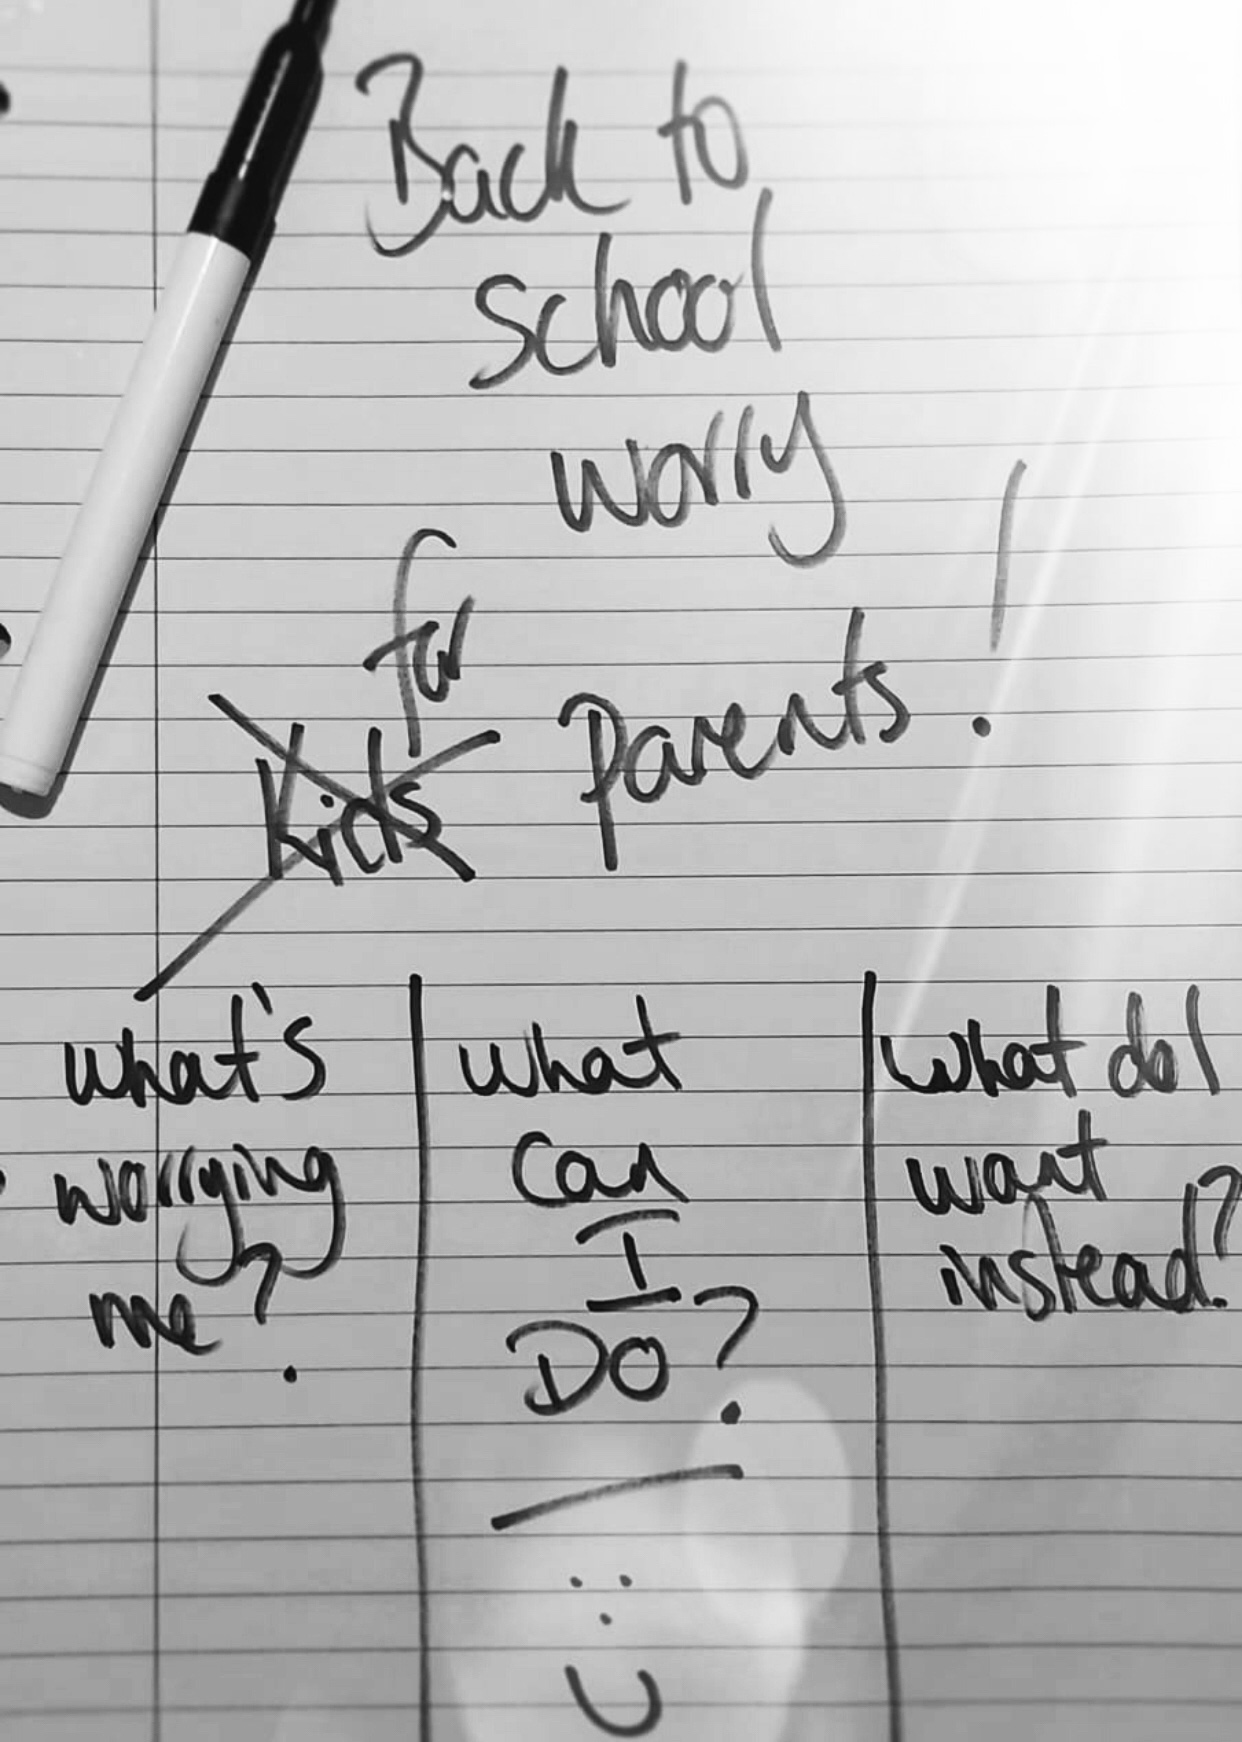 Back to
school
worry
for
Kids Parents!
what's
worrying
me?
what
can
I
DO?
what do I
want
instead?